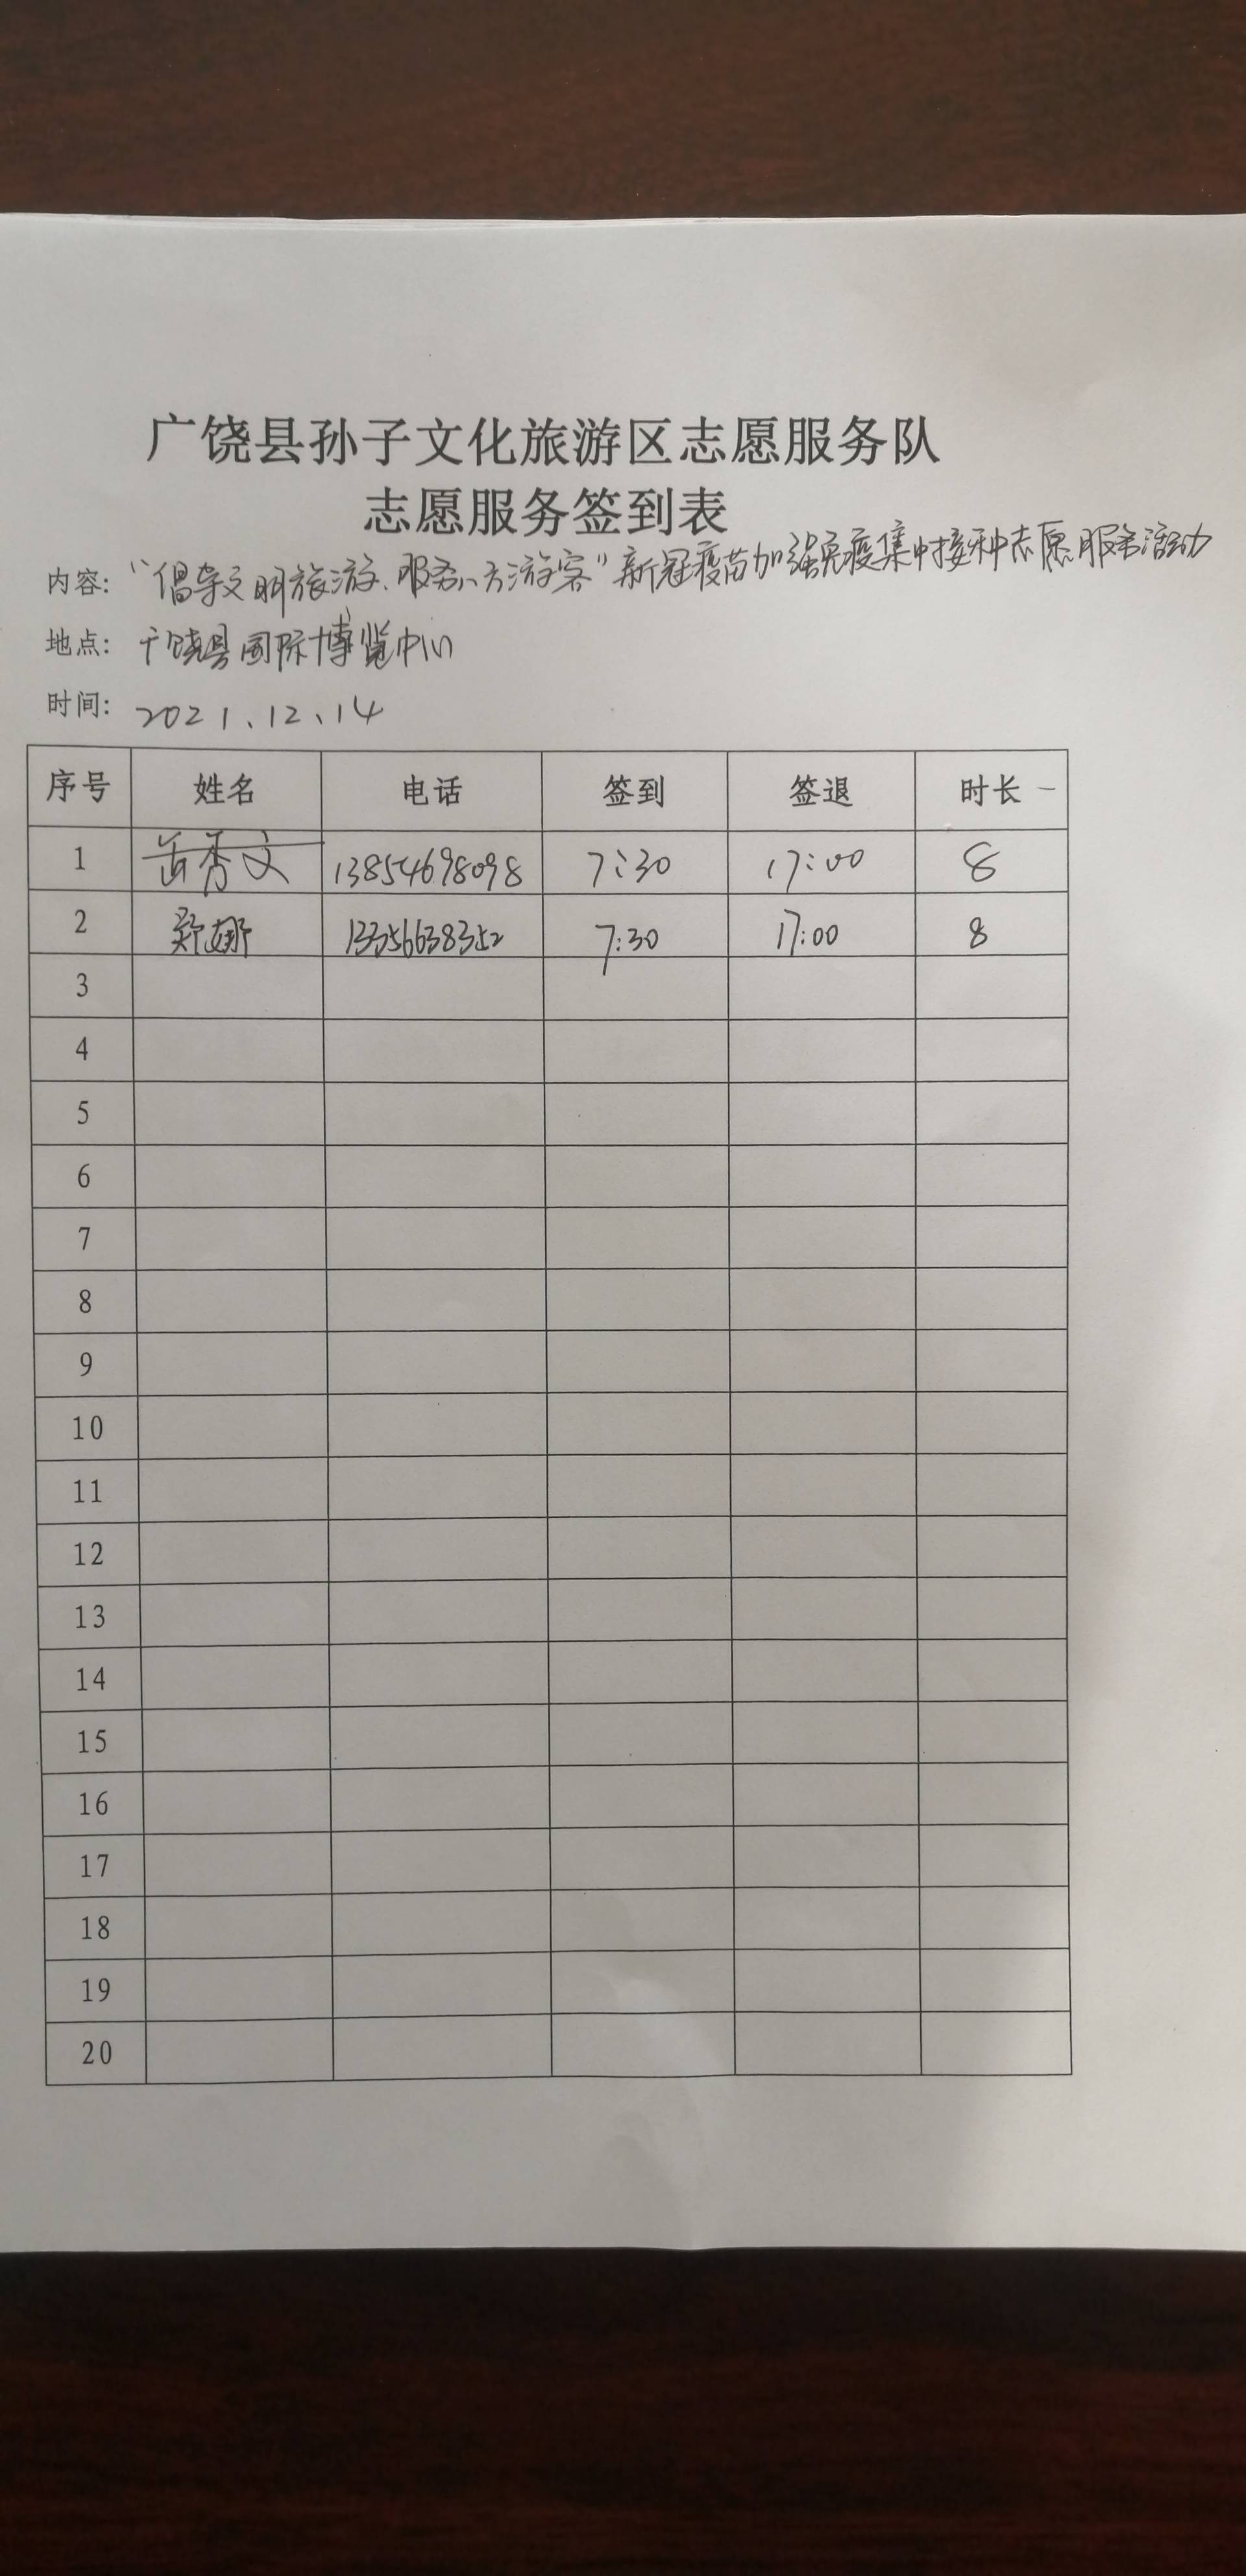 广饶县孙子文化旅游区志愿服务队
志愿服务签到表
内容: “倡导文明旅游、服务八方游客”新冠疫苗加强免疫集中接种志愿服务活动
地点: 广饶县国际博览中心
时间: 2021、12、14
序号 姓名 电话 签到 签退 时长
1 苗秀文 13854698098 7:30 17:00 8
2 郑娜 13356638352 7:30 17:00 8
3
4
5
6
7
8
9
10
11
12
13
14
15
16
17
18
19
20